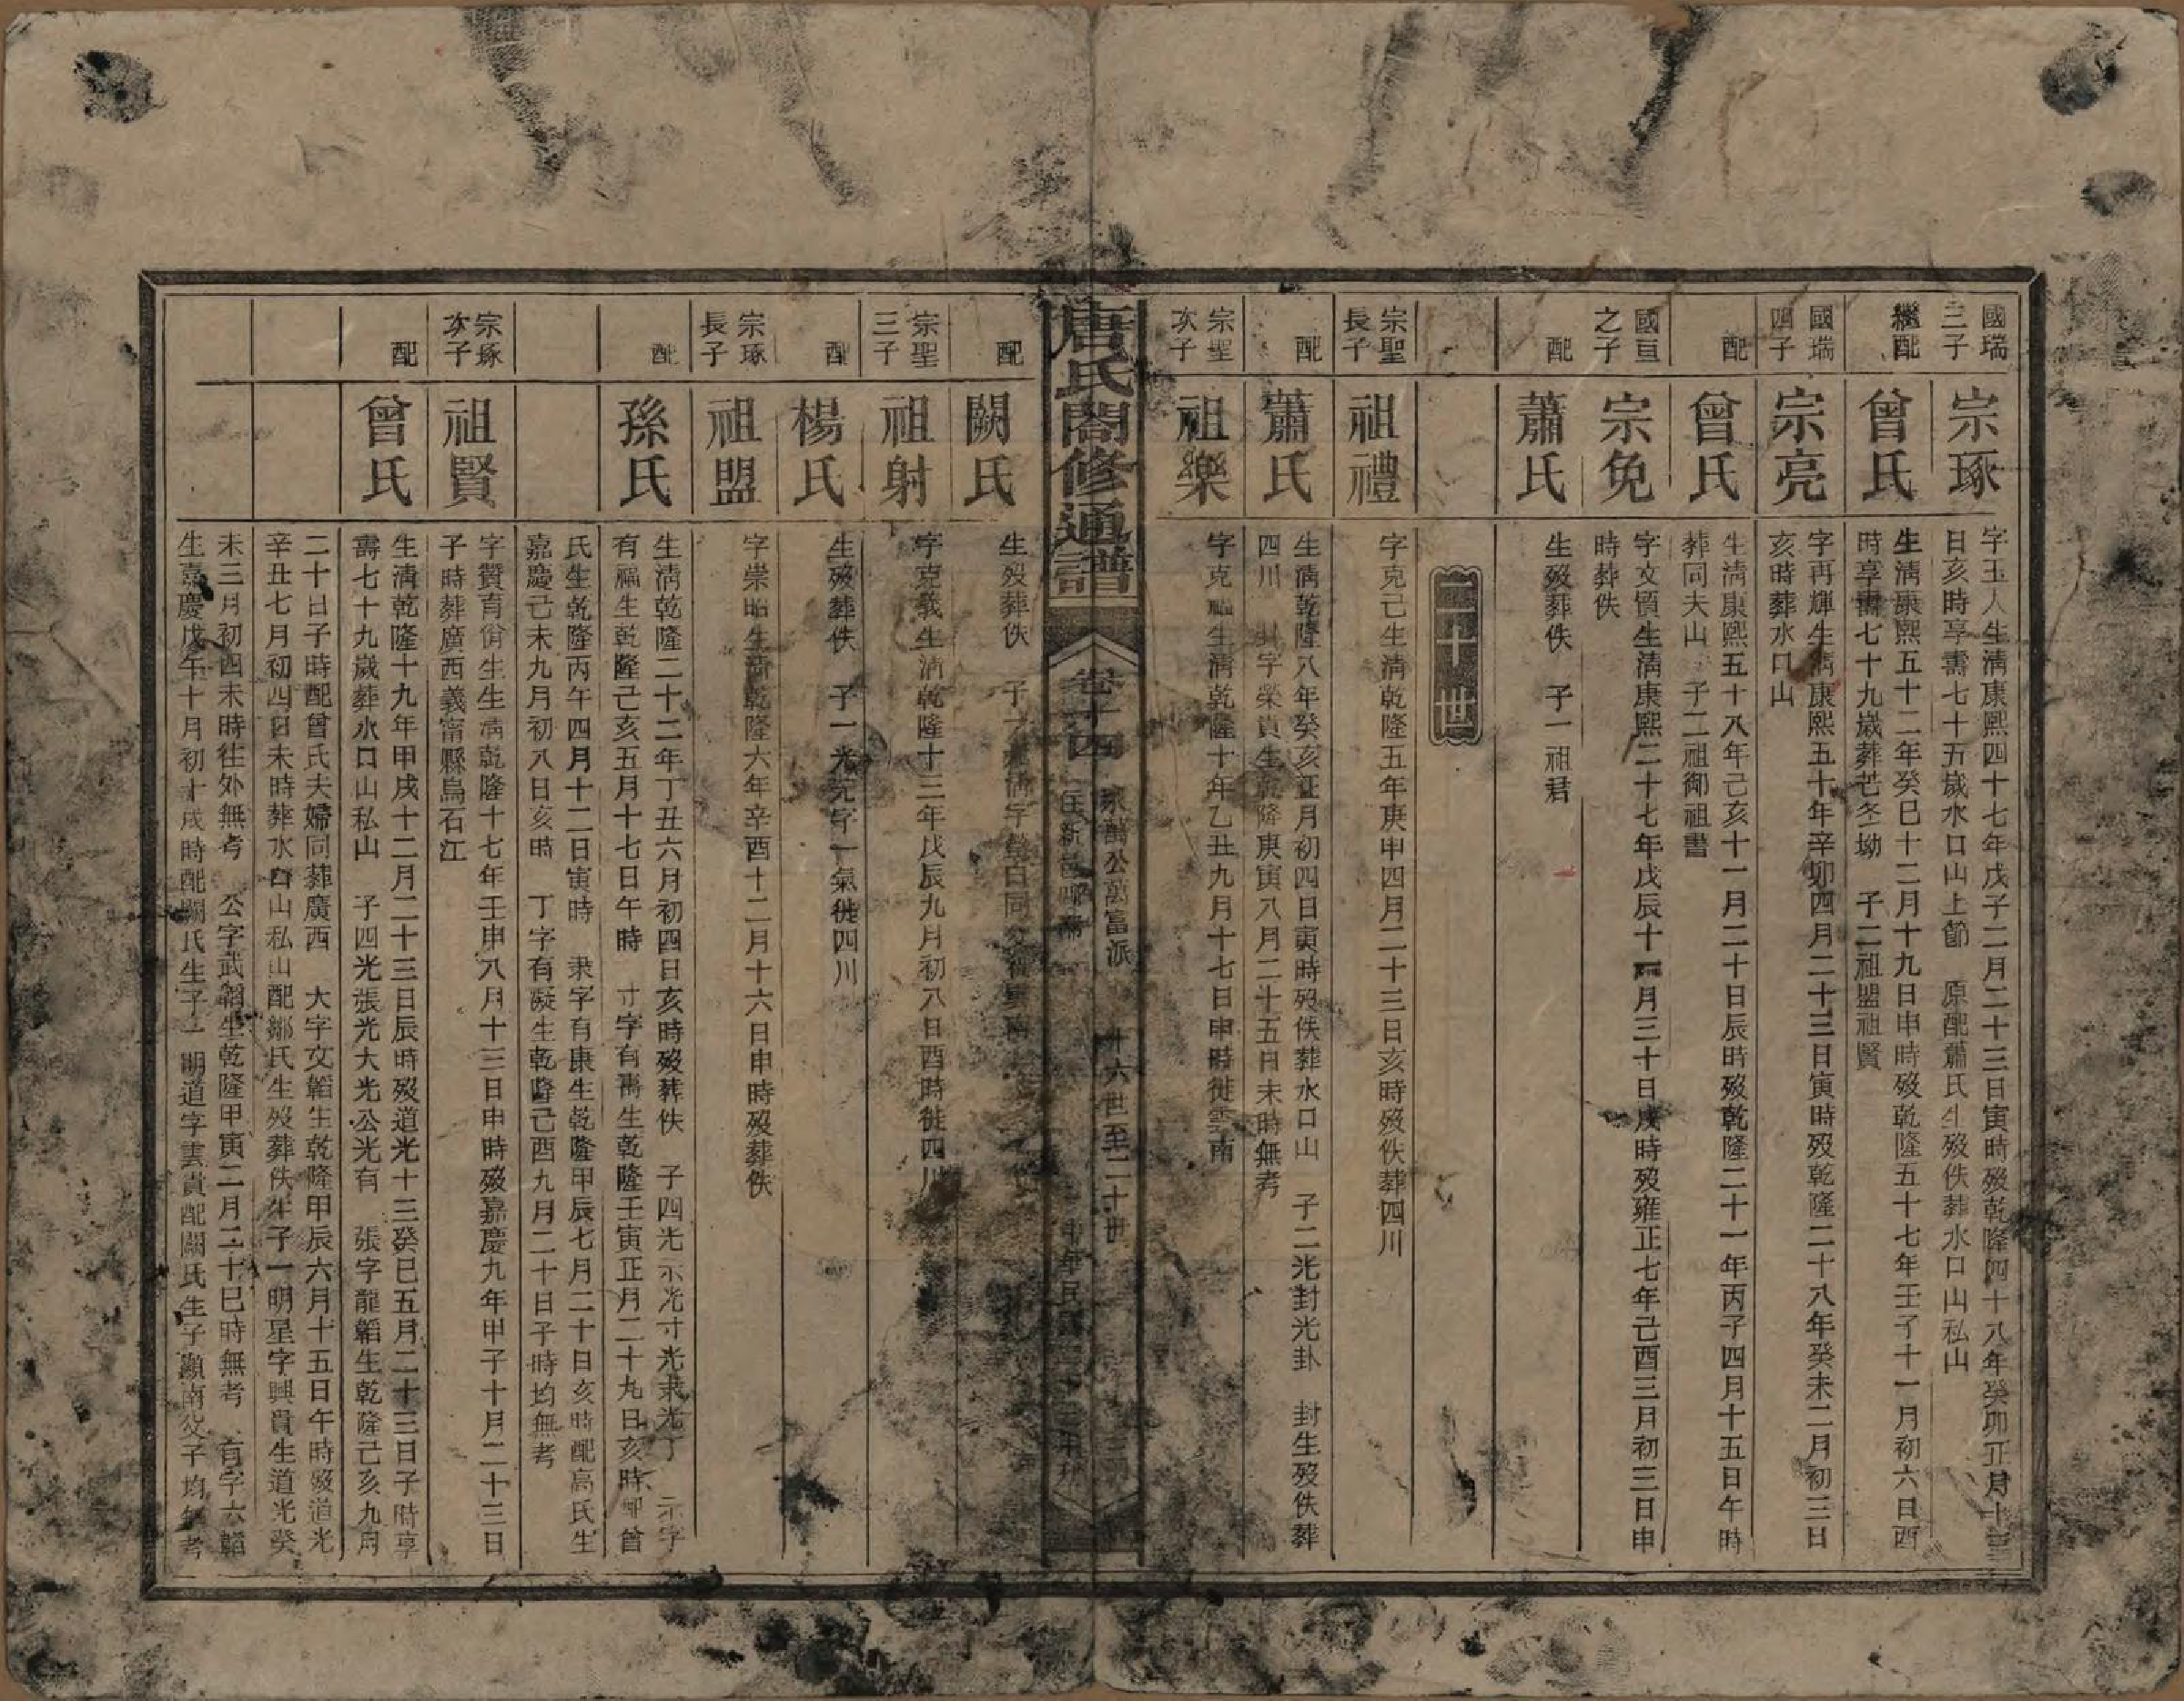 國瑞三子
宗琢
字玉人生清康熙四十七年戊子二月二十三日寅時歿乾隆四十八年癸卯正月十三
日亥時享壽七十五歲水口山上節　原配蕭氏生歿佚葬水口山私山
繼配
曾氏
生清康熙五十二年癸巳十二月十九日申時歿乾隆五十七年壬子十一月初六日酉
時享壽七十九歲葬芒冬坳　子二祖盟祖賢
國瑞四子
宗亮
字再輝生清康熙五十年辛卯四月二十三日寅時歿乾隆二十八年癸未二月初三日
亥時葬水口山
配
曾氏
生清康熙五十八年己亥十一月二十日辰時歿乾隆二十一年丙子四月十五日午時
葬同夫山　子二祖御祖書
國亘之子
宗免
字文質生清康熙二十七年戊辰十一月三十日戌時歿雍正七年己酉三月初三日申
時葬佚
配
蕭氏
生歿葬佚　子一祖君
二十世
宗聖長子
祖禮
字克己生清乾隆五年庚申四月二十三日亥時歿佚葬四川
配
蕭氏
生清乾隆八年癸亥正月初四日寅時歿佚葬水口山　子二光封光卦　封生歿佚葬
四川　卦字榮貴生乾隆庚寅八月二十五日未時無考
宗聖次子
祖樂
字克福生清乾隆十年乙丑九月十七日申時徙雲南
唐氏閤修通譜
卷十四
永萬公萬富派
十六世至二十世
配
闕氏
生歿葬佚　子
宗聖三子
祖射
字克義生清乾隆十三年戊辰九月初八日酉時徙四川
配
楊氏
生歿葬佚　子一光元字一氣徙四川
宗琢長子
祖盟
字崇昭生清乾隆六年辛酉十二月十六日申時歿葬佚
配
孫氏
生清乾隆二十二年丁丑六月初四日亥時歿葬佚　子四光示光寸光隶光丁　示字
有福生乾隆己亥五月十七日午時　寸字有壽生乾隆壬寅正月二十九日亥時卿曾
氏生乾隆丙午四月十二日寅時　隶字有康生乾隆甲辰七月二十日亥時配高氏生
嘉慶己未九月初八日亥時　丁字有凝生乾隆己酉九月二十日子時均無考
宗琢次子
祖賢
字贊育衡生生清乾隆十七年壬申八月十三日申時歿嘉慶九年甲子十月二十三日
子時葬廣西義甯縣烏石江
配
曾氏
生清乾隆十九年甲戌十二月二十三日辰時歿道光十三癸巳五月二十三日子時享
壽七十九歲葬水口山私山　子四光張光大光公光有　張字龍韜生乾隆己亥九月
二十日子時配曾氏夫婦同葬廣西　大字文韜生乾隆甲辰六月十五日午時歿道光
辛丑七月初四日未時葬水口山私山配鄒氏生歿葬佚生子一明星字興貴生道光癸
未三月初四未時往外無考　公字武韜生乾隆甲寅二月二十巳時無考　有字六韜
生嘉慶戊午十月初十戌時配闕氏生子一明道字雲貴配闕氏生子灝南父子均無考